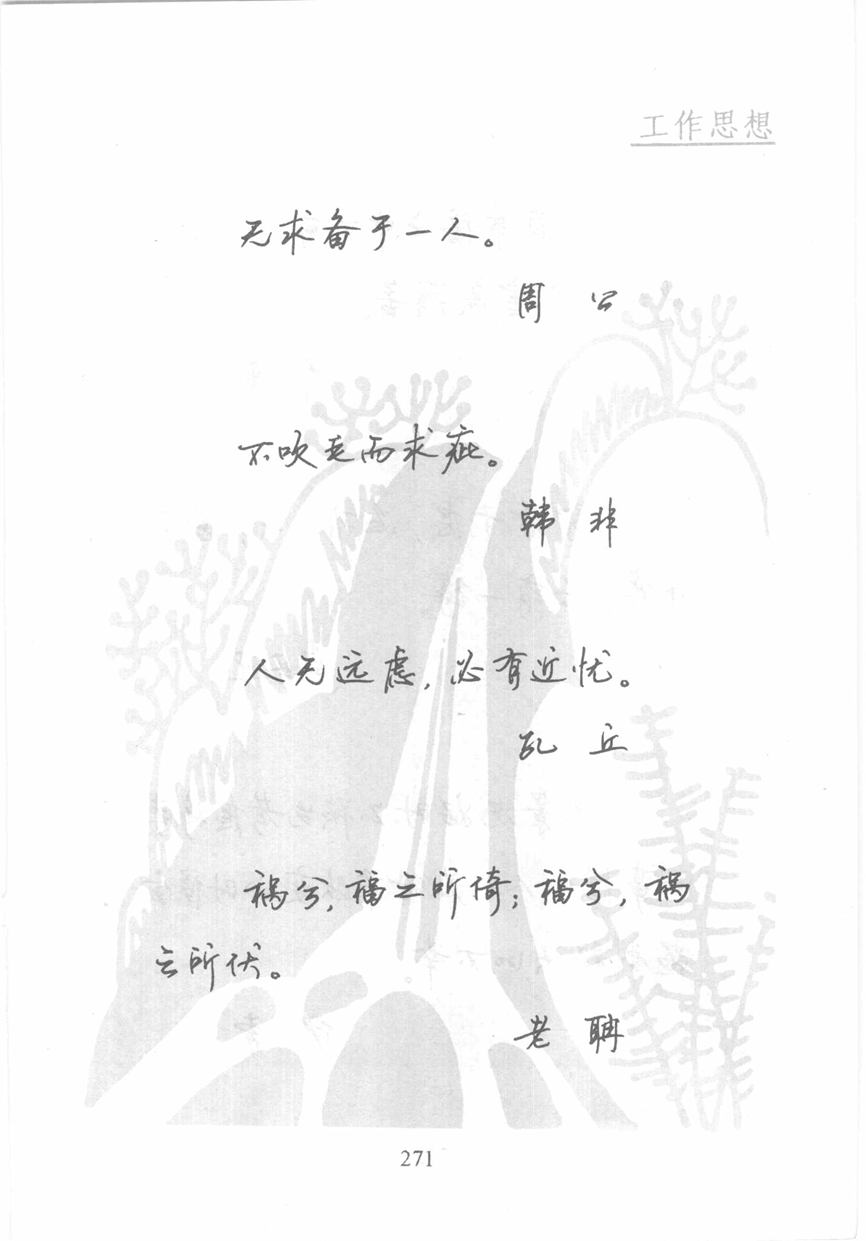 工作思想
无求备于一人。
周 公
不吹毛而求疵。
韩 非
人无远虑，必有近忧。
孔 丘
祸兮，福之所倚；福兮，祸
之所伏。
老 聃
271